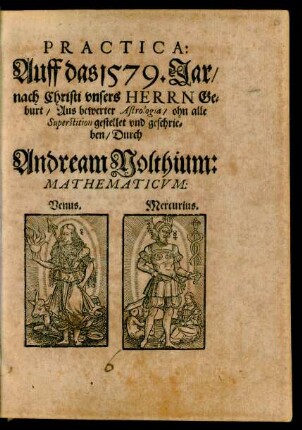 PRACTICA:
Auff das 1579. Jar/
nach Christi vnsers HERRN Ge-
burt/ Aus bewerter Astrologia/ ohn alle
Superstition gestellet vnd geschrie-
ben/ Durch
Andream Volthium:
MATHEMATICVM:
Venus. Mercurius.
6